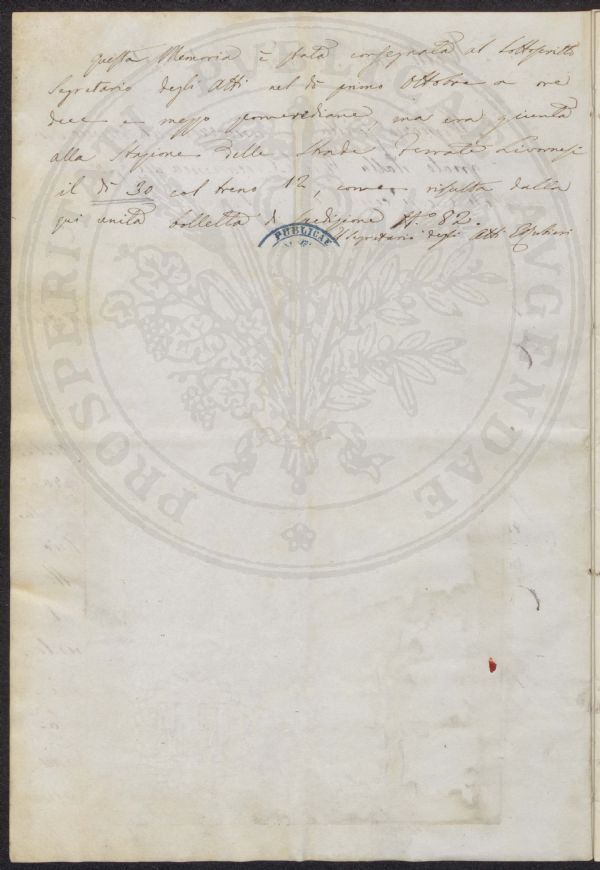 Questa Memoria è stata consegnata al Sottoscritto
Segretario degli Atti nel dì primo Ottobre a ore
dieci e mezzo pomeridiane, ma era giunta
alla Stazione delle Strade Ferrate Livornesi
il dì 30 col treno 12, come risulta dalla
qui unita bolletta di Spedizione N.° 82.
Il Segretario degli Atti
PUBLICAE
PROSPERITATI PUBLICAE AUGENDAE